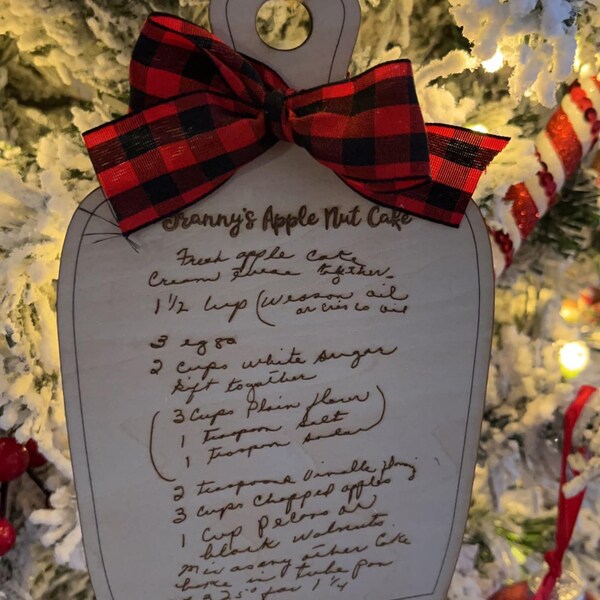 Franny's Apple Nut Cake
Fresh apple Cake
Cream these together
1 1/2 Cup (Wesson oil
or crisco oil
3 eggs
2 Cups white sugar
Sift together
(3 Cups Plain flour
1 teaspoon Salt
1 teaspoon soda)
2 teaspoons Vanilla
3 Cups Chopped apples
1 Cup Pecans or
black walnuts.
Mix as any other Cake
bake in tube pan
325° for 1 1/4